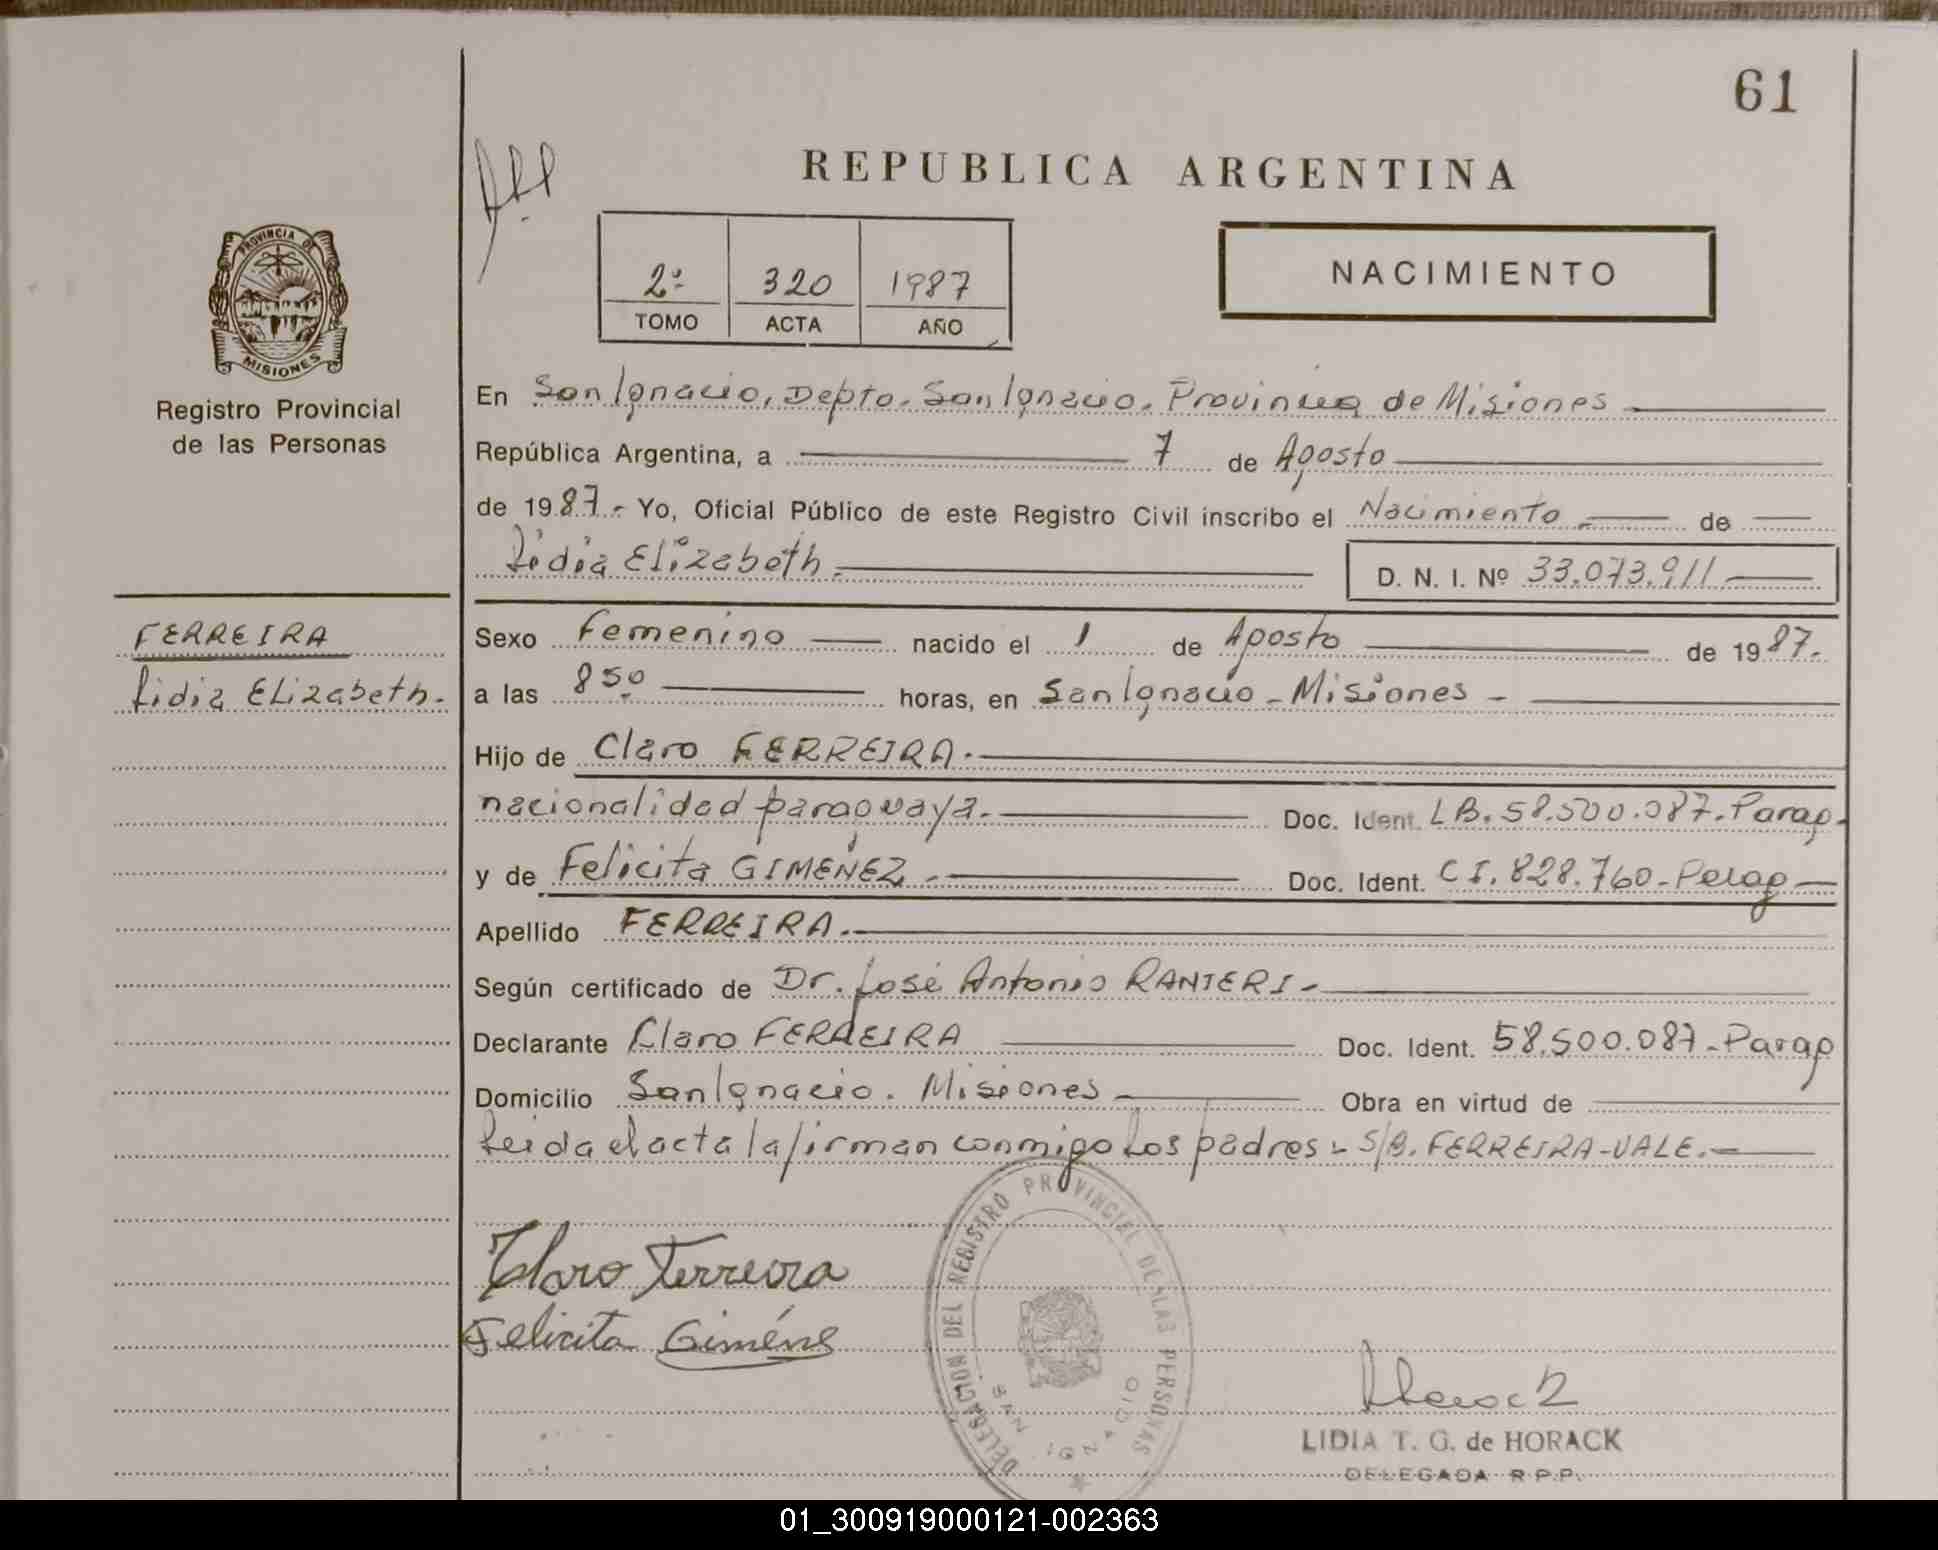 61
REPUBLICA ARGENTINA
2º TOMO
320 ACTA
1987 AÑO
NACIMIENTO
PROVINCIA DE
MISIONES
Registro Provincial
de las Personas
FERREIRA
Lidia Elizabeth.
En San Ignacio, Depto. San Ignacio. Provincia de Misiones
República Argentina, a 7 de Agosto
de 1987.- Yo, Oficial Público de este Registro Civil inscribo el Nacimiento.- de
Lidia Elizabeth.
D. N. I. Nº 33.073.911
Sexo Femenino nacido el 1 de Agosto de 1987.
a las 850 horas, en San Ignacio - Misiones -
Hijo de Claro FERREIRA.
nacionalidad paraguaya. Doc. Ident. LB. 58.500.087. Parag.
y de Felicita GIMENEZ. Doc. Ident. C I. 828.760 - Parag
Apellido FERREIRA.
Según certificado de Dr. José Antonio RANIERI -
Declarante Claro FERREIRA Doc. Ident. 58.500.087 - Parag
Domicilio San Ignacio. Misiones Obra en virtud de
Leida el acta la firman conmigo los padres - S/B. FERREIRA - VALE.
Claro Ferreira
Felicita Giméne
DELEGACION DEL REGISTRO PROVINCIAL DE LAS PERSONAS
SAN IGNACIO
LIDIA T. G. de HORACK
DELEGADA R.P.P.
01_300919000121-002363